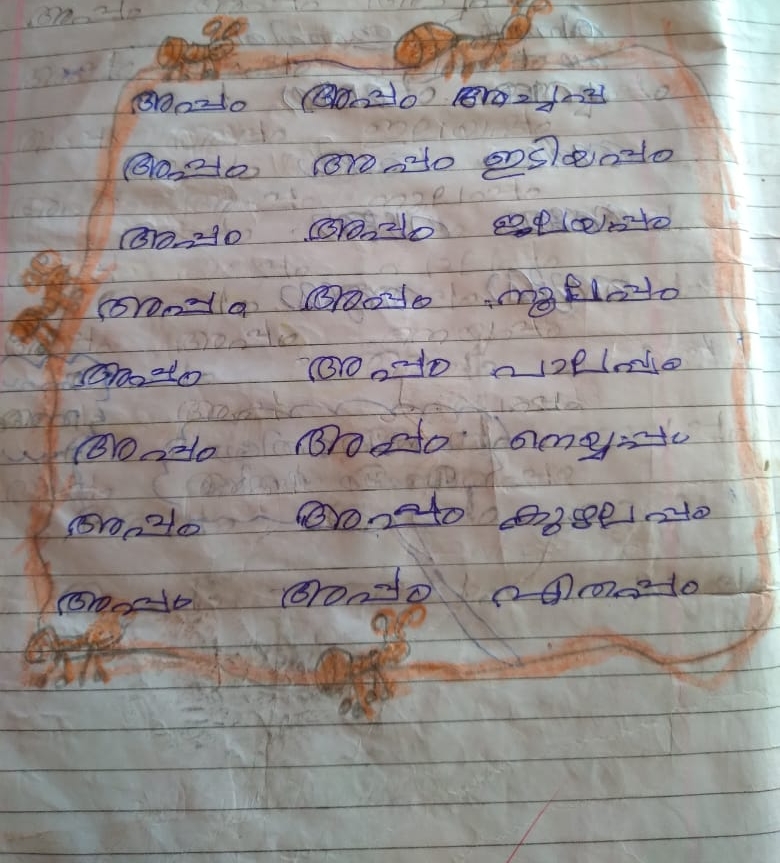 അപ്പം അപ്പം അച്ചപ്പ
അപ്പം അപ്പം ഇടിയപ്പം
അപ്പം അപ്പം ഇലയപ്പം
അപ്പം അപ്പം നൂലപ്പം
അപ്പം അപ്പം പാലപ്പം
അപ്പം അപ്പം നെയ്യപ്പം
അപ്പം അപ്പം കുഴലപ്പം
അപ്പം അപ്പം